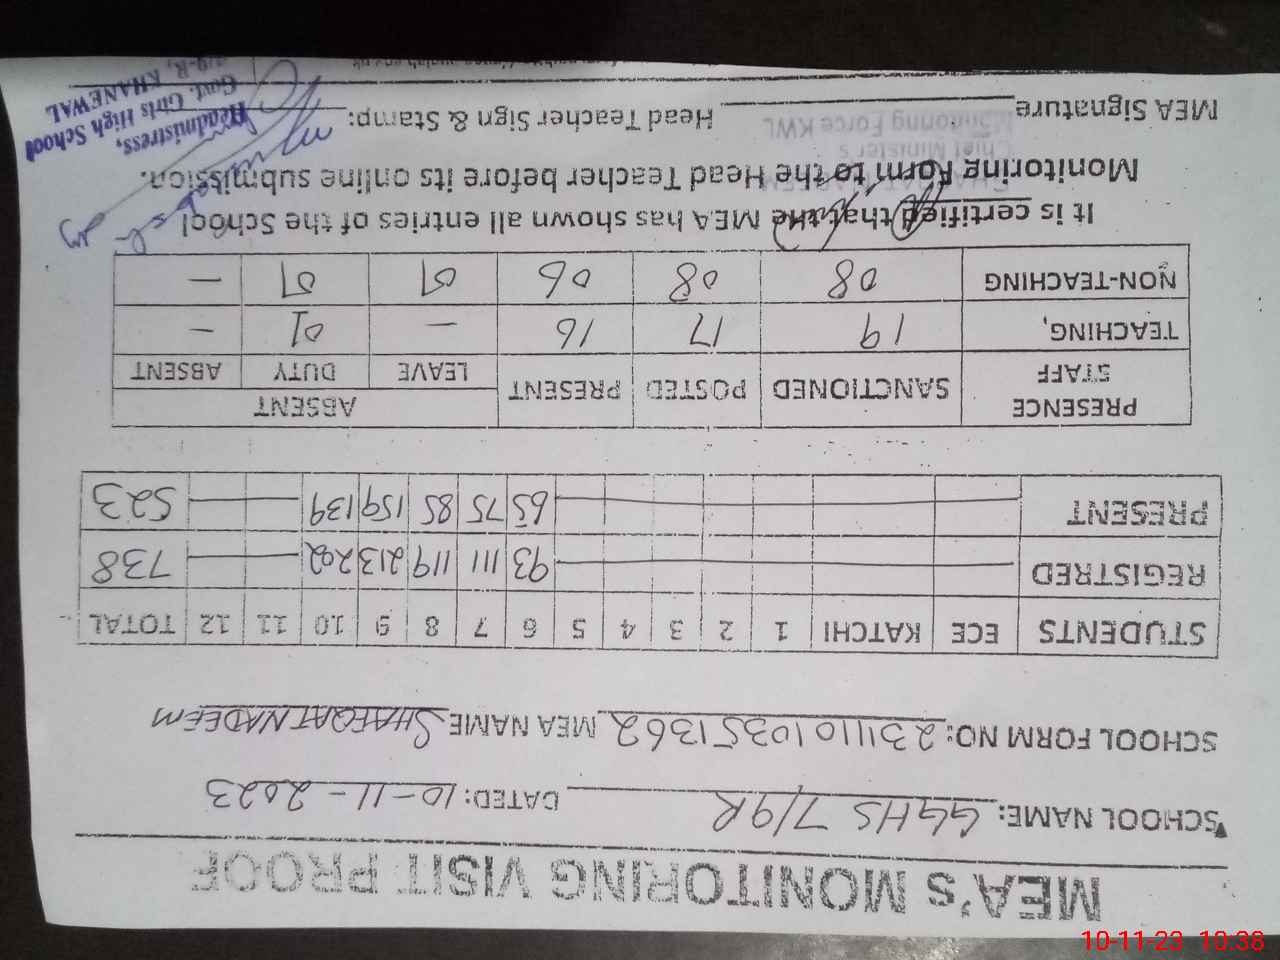 MEA's MONITORING VISIT PROOF
SCHOOL NAME: GGHS 7/9R DATED: 10-11-2023
SCHOOL FORM NO: 23111010351362 MEA NAME SHAFQAT NADEEM
STUDENTS ECE KATCHI 1 2 3 4 5 6 7 8 9 10 11 12 TOTAL
REGISTRED 93 111 119 213 202 738
PRESENT 65 75 85 159 139 523
PRESENCE STAFF SANCTIONED POSTED PRESENT ABSENT
LEAVE DUTY ABSENT
TEACHING, 19 17 16 — 01 —
NON-TEACHING 08 08 06 01 01 —
It is certified that the MEA has shown all entries of the School
Monitoring Form to the Head Teacher before its online submission.
Chief Minister's
Monitoring Force KWL
MEA Signature Head Teacher Sign & Stamp:
Headmistress,
Govt. Girls High School
KHANEWAL
10-11-23 10:38